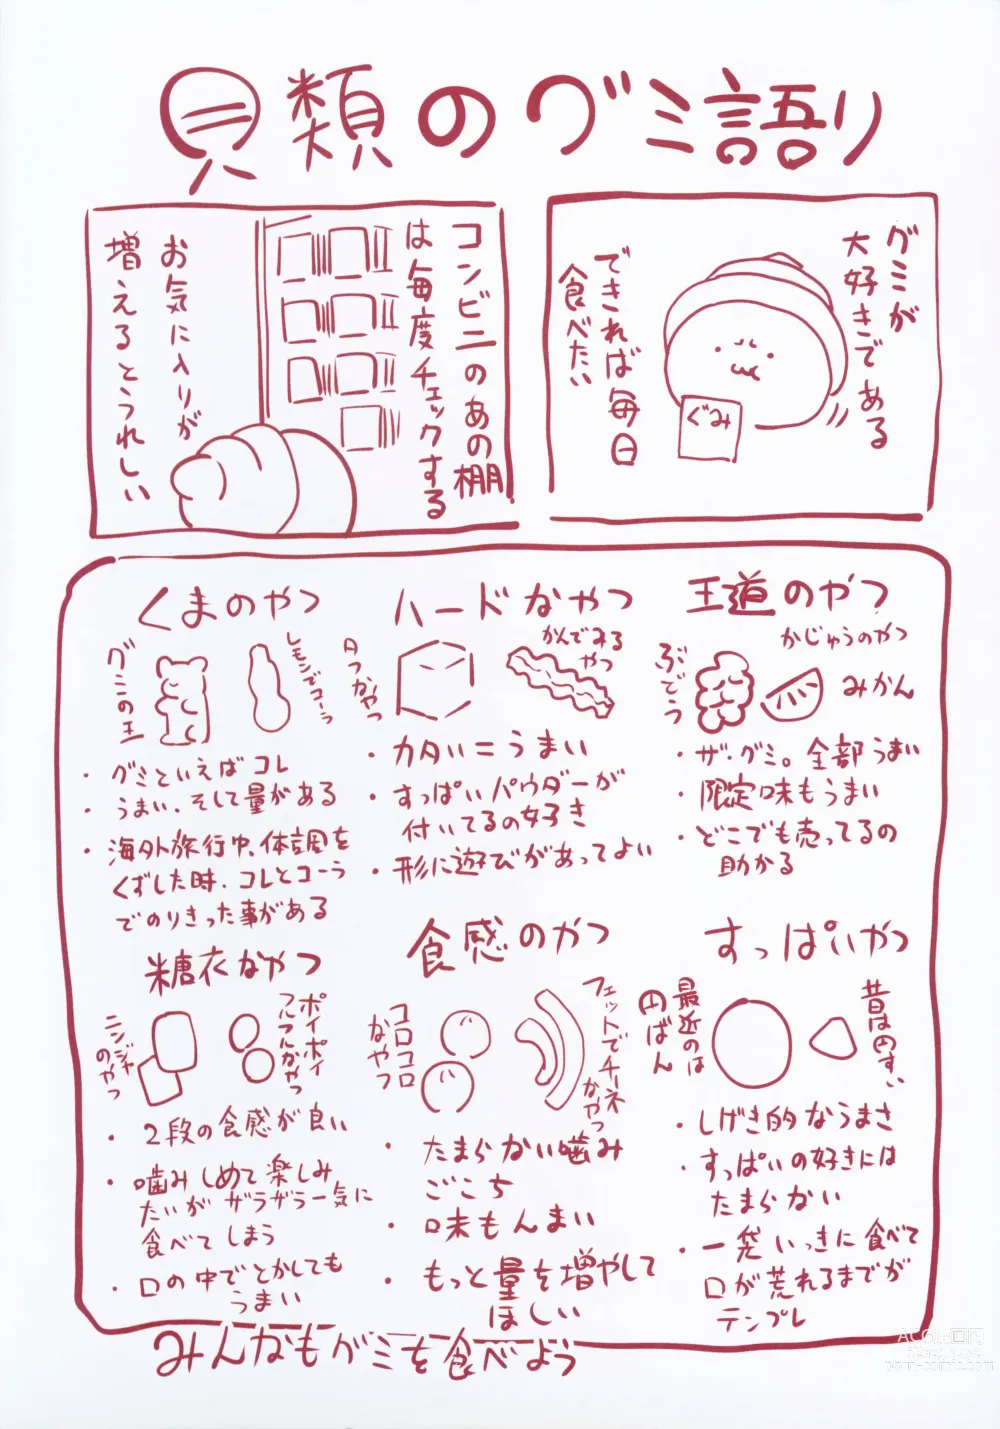 貝類のグミ語り
グミが
大好きである
できれば毎日
食べたい
ぐみ
コンビニのあの棚
は毎度チェックする
お気に入りが
増えるとうれしい
王道のやつ
かじゅうのやつ
ぶどう
みかん
・ザ・グミ。全部うまい
・限定味もうまい
・どこでも売ってるの
助かる
ハードなやつ
かんでみる
やつ
タフなやつ
・カタい=うまい
・すっぱいパウダーが
付いてるの好き
・形に遊びがあってよい
くまのやつ
グミの王
レモンでコーラ
・グミといえばコレ
・うまい、そして量がある
・海外旅行中、体調を
くずした時、コレとコーラ
でのりきった事がある
すっぱいやつ
昔はのすい
最近のは
円ばん
・しげき的なうまさ
・すっぱいの好きには
たまらない
・一袋いっきに食べて
口が荒れるまでが
テンプレ
食感のやつ
フェットでチーネ
なやつ
コロコロコロ
なやつ
・たまらない噛み
ごこち
・味もんまい
・もっと量を増やして
ほしい
糖衣なやつ
ポイポイ
フルフルなやつ
ニンジャ
のやつ
・2段の食感が良い
・噛みしめて楽しみ
たいがザラザラ一気に
食べてしまう
・口の中でとかしても
うまい
みんなもグミを食べよう